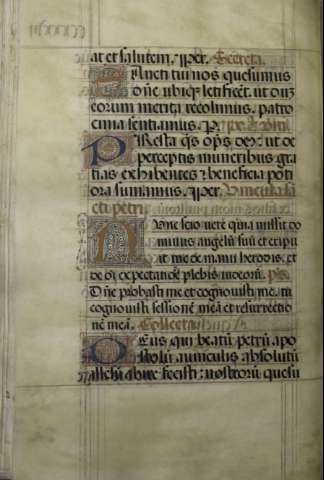 at et salutem. per. Secreta.
Sancti tui nos quesumus
dñe ubiqȝ letificēt. ut dūȝ
eorum merita recolimus. patro
cinia sentiamus. P.
Presta qs̄ ops̄ deꝰ: ut de
perceptis muneribus gra
tias exhibentes ⁊ beneficia poti
ora sumamus. per. Vincula
cti petri
Nunc scio vere quia misit do
minus angelū suū et eripu
it me de manu herodis. et
de oī expectatiōe plebis iudeorū. p̄s.
Dn̄e probasti me et cognouisti me. tu
cognouisti sessionē meā et resurrectio
nē meā. Collecta
Deus qui beatū petrū apo
stolū a uinculis absolutū
illesū abire fecisti: nostrorū quesu